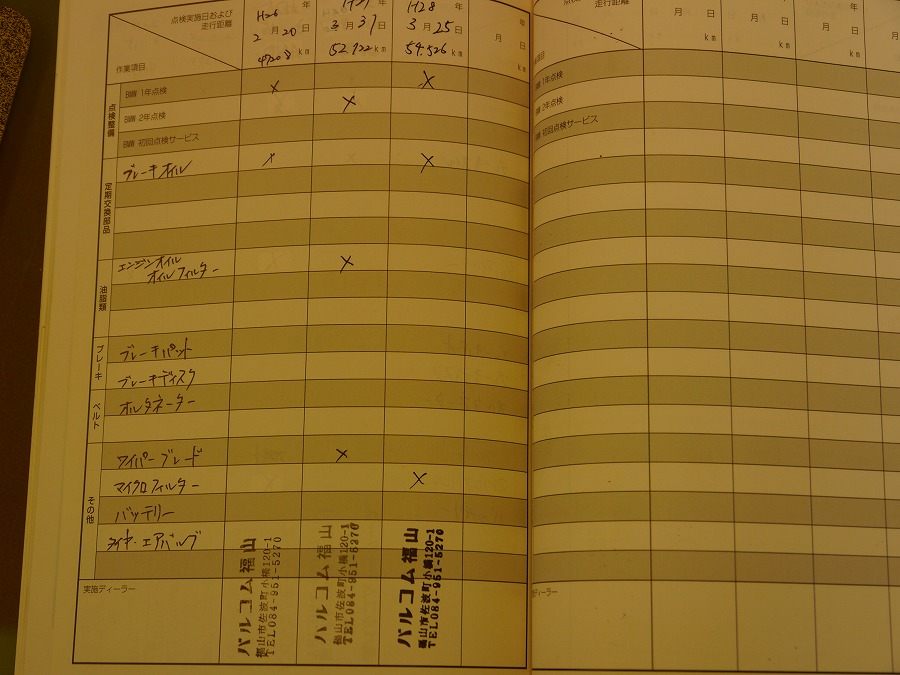 点検実施日および
走行距離
作業項目
H26 年
2月20日
km
H27 年
3月31日
52,922km
H28 年
3月25日
59,526km
年
月 日
km
点検整備
BMW 1年点検 × ×
BMW 2年点検 ×
BMW 初回点検サービス
定期交換部品
ブレーキオイル × ×
油脂類
エンジンオイル
オイルフィルター ×
ブレーキ
ブレーキパット
ブレーキディスク
ベルト
オルタネーター
その他
ワイパーブレード ×
マイクロフィルター ×
バッテリー
タイヤ・エアバルブ
実施ディーラー
バルコム福山
福山市佐波町小橋120-1
TEL084-951-5270
バルコム福山
福山市佐波町小橋120-1
TEL084-951-5270
バルコム福山
福山市佐波町小橋120-1
TEL084-951-5270
走行距離
月 日
km
月 日
km
月 日
km
月
1年点検
2年点検
初回点検サービス
ディーラー